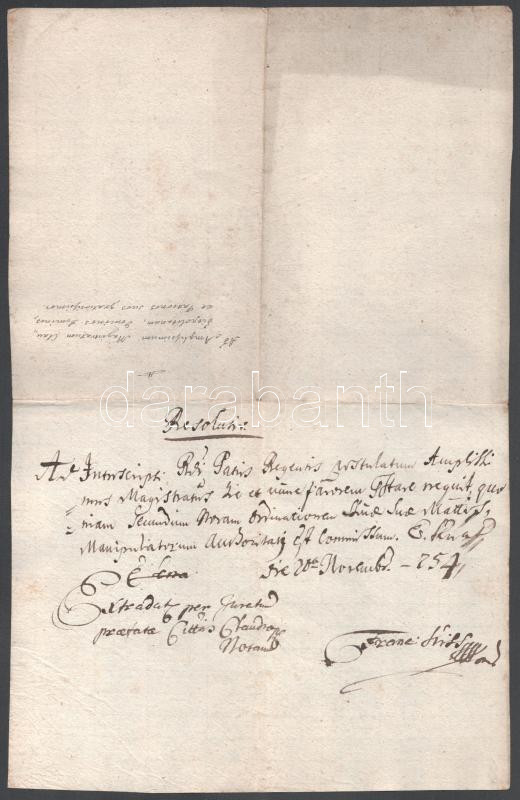 Ad Amplissimum Magistratum Clau,
diopolitanum, Dominos Dominos,
ac Patronos suos gratiosissimos.
darabanth
Resolutio.
Ad Interscripti Rdi Patris Regentis postulatum Amplissi
mus Magistratus hic et nunc favorem gestare nequit, quo
niam Secundum Novam Ordinationem Suae Mattis,
Manipulatorum Authoritati est Commissum.
die 20a Novembr. 754
Extradat per Juratum
praefatae Cittis Claudiop
Notarium
Franc: